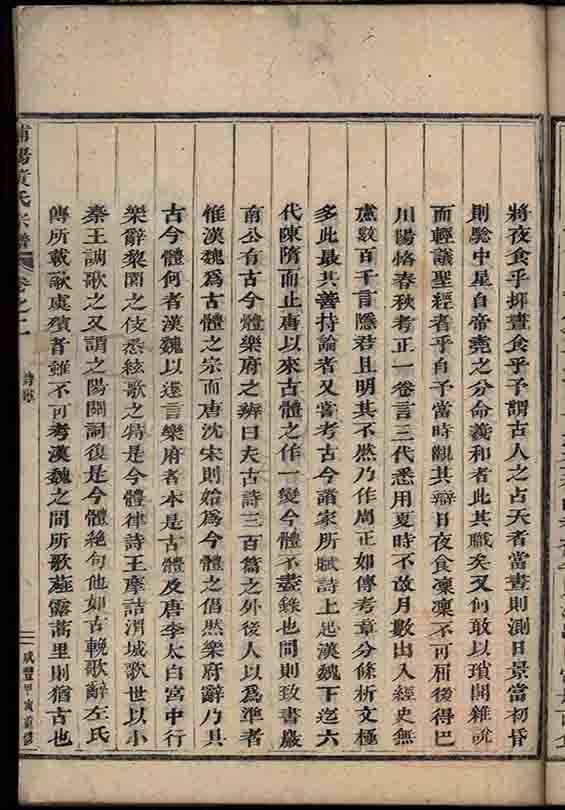 將夜食乎抑晝食乎予謂古人之占天者當晝則測日景當初昏
則驗中星自帝堯之分命羲和者此其職矣又何敢以瑣聞雜說
而輕議聖經者乎自予當時觀其辯日夜食凜凜不可屈後得巴
川陽恪春秋考正一卷言三代悉用夏時不改月數出入經史無
慮數百千言隱君且明其不然乃作周正如傳考章分條析文極
多此最其善持論者又嘗考古今諸家所賦詩上起漢魏下迄六
代陳隋而止唐以來古體之作一變今體不盡錄也間則致書嚴
南公有古今體樂府之辨曰夫古詩三百篇之外後人以爲準者
惟漢魏爲古體之宗而唐沈宋則始爲今體之倡然樂府辭乃具
古今體何者漢魏以還言樂府者本是古體及唐李太白宮中行
樂辭黎園之伎悉絃歌之特是今體律詩王摩詰渭城歌世以小
秦王調歌之又謂之陽關詞復是今體絕句他如古輓歌辭左氏
傳所載歌虞殯者雖不可考漢魏之間所歌薤露蒿里則猶古也
浦陽黃氏宗譜 卷之二 詩歌 咸豐甲寅重修